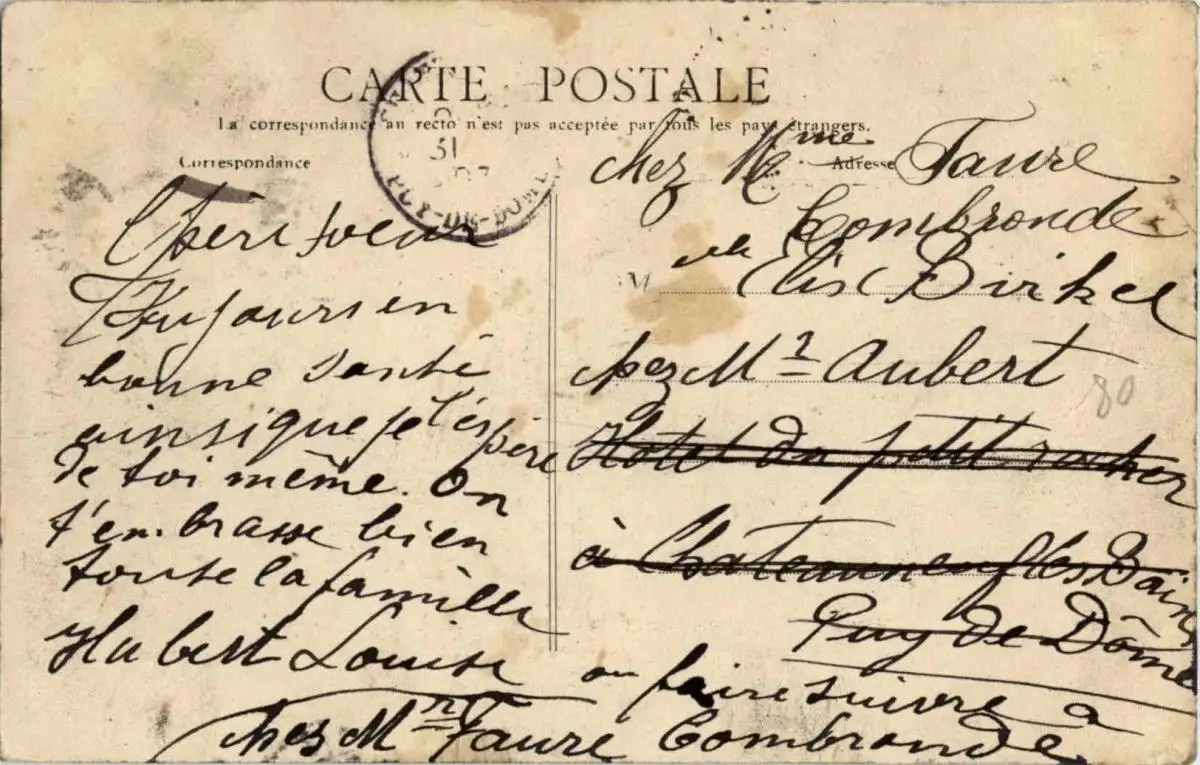 CARTE POSTALE
La correspondance au recto n'est pas acceptée par tous les pays étrangers.
Correspondance
Adresse
31
PUY-DE-DOME
Cheri soeur
Toujours en
bonne santé
ainsi que je l'espère
de toi même. On
t'embrasse bien
toute la famille
Hubert Louise
chez Mme Faure
Combronde
M elle Elis Birkel
chez Mr Aubert
Hotel du petit rocher
à Chateauneuf les Bains
Puy de Dôme
80
ou faire suivre à
chez Mr Faure Combronde